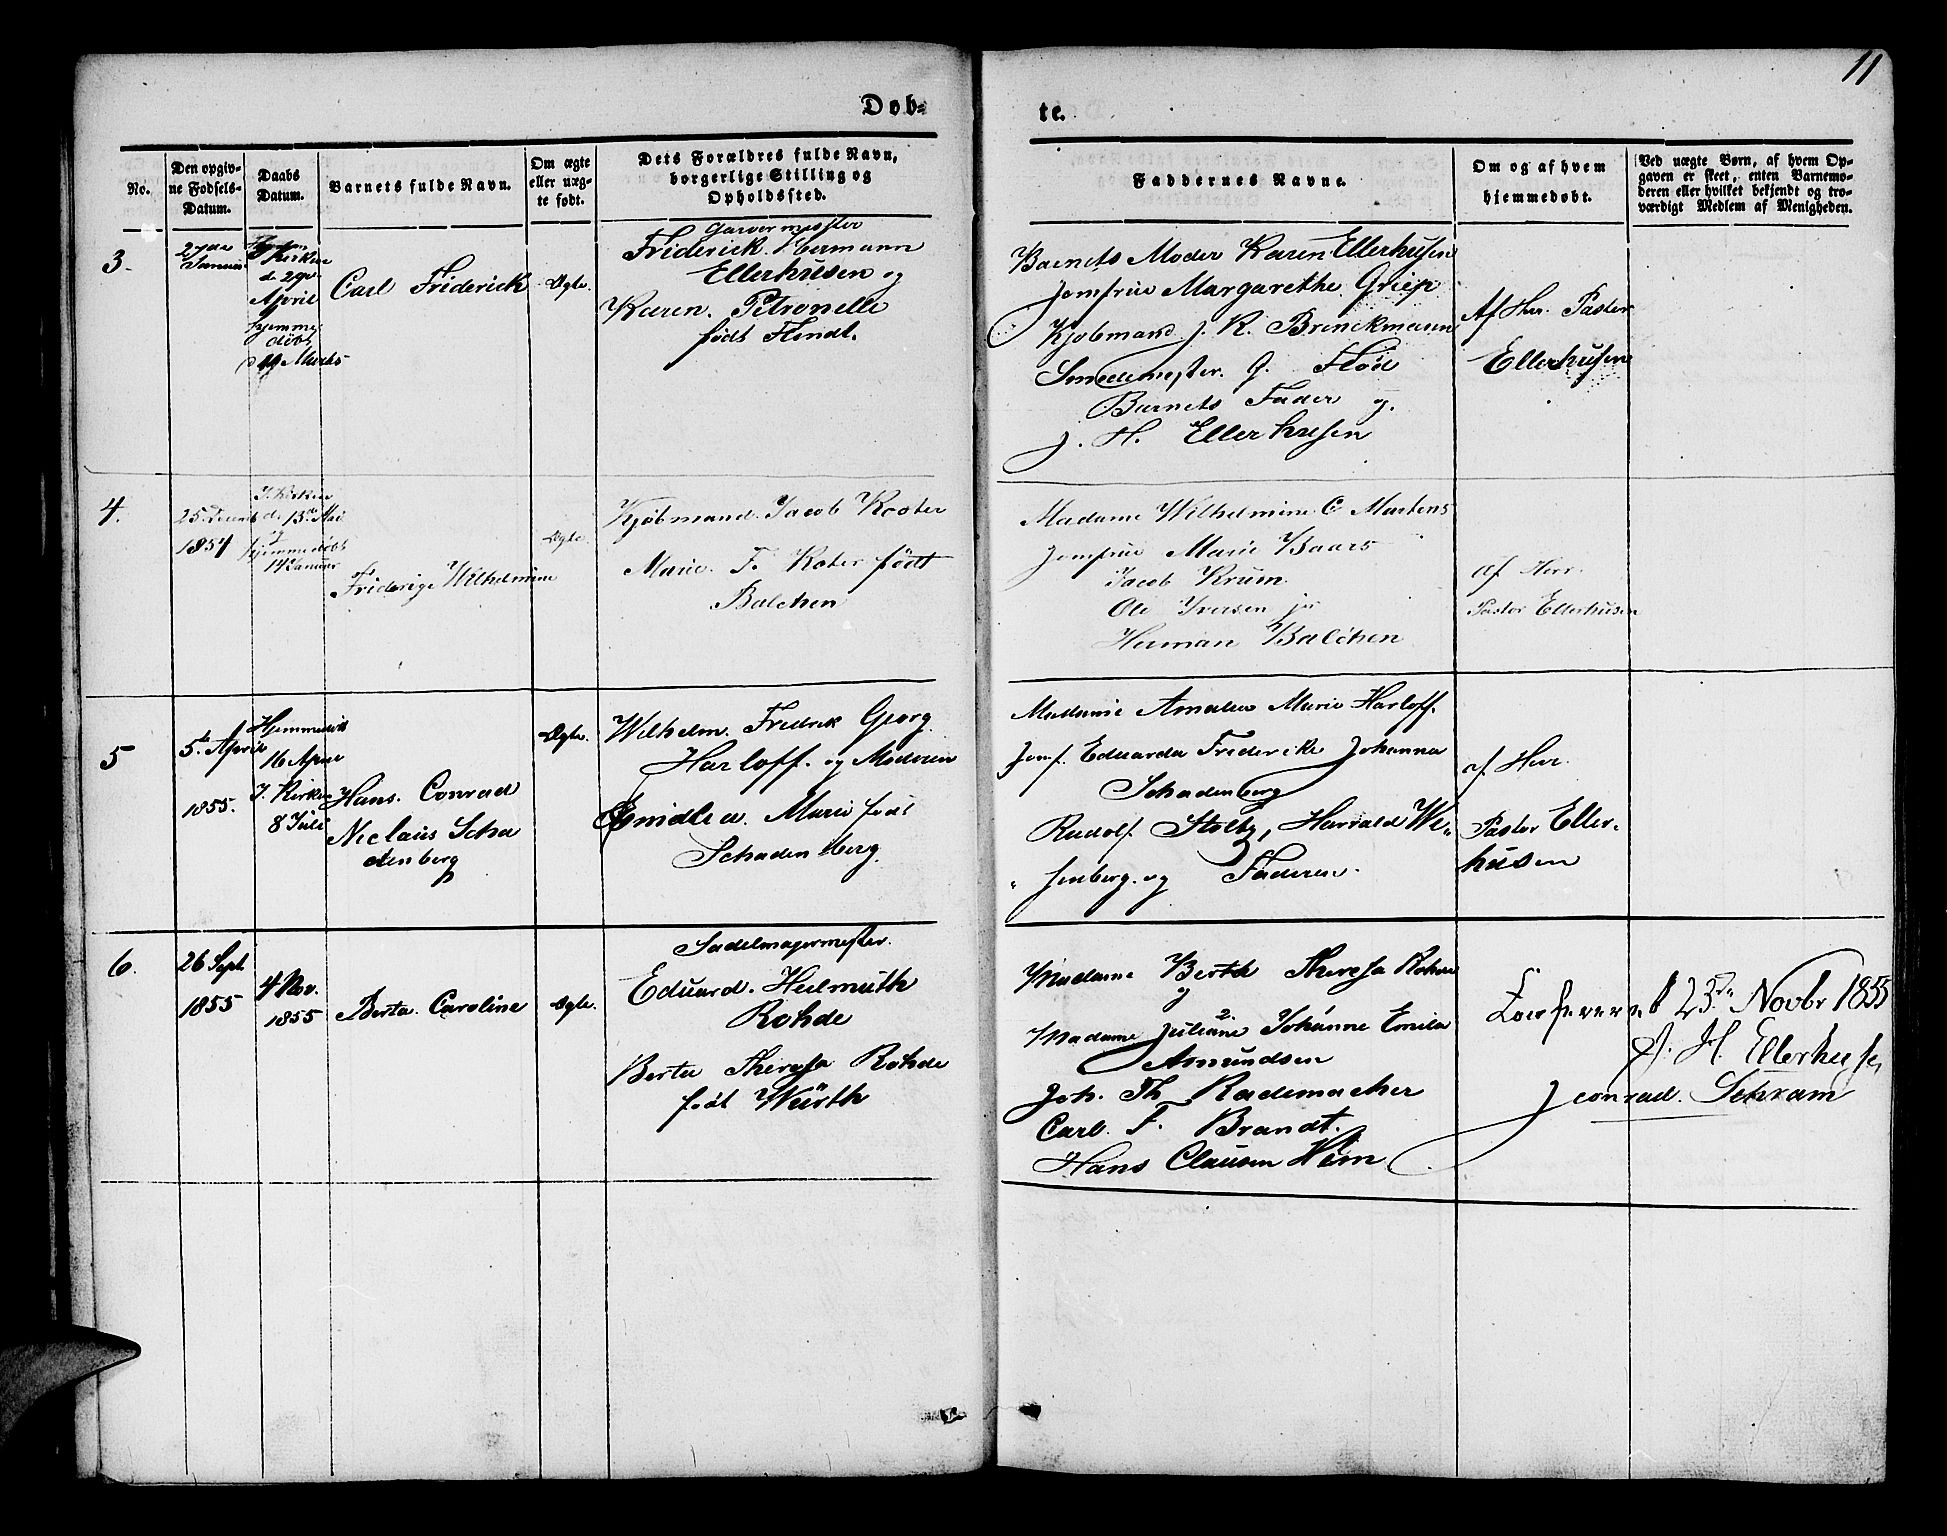 11
Døb-
te.
No.
Den opgiv-
ne Fødsels-
Datum.
Daabs
Datum.
Barnets fulde Navn.
Om ægte
eller uæg-
te født.
Dets Forældres fulde Navn,
borgerlige Stilling og
Opholdssted.
Faddernes Navne.
Om og af hvem
hjemmedøbt.
Ved uægte Børn, af hvem Op-
gaven er skeet, enten Barnemo-
deren eller hvilket bekjendt og tro-
værdigt Medlem af Menigheden.
3.
Januar
Kirken
d. 29de
April
hjemme
døbt
Marts
Carl Friderick
Ægte.
Garvermester
Friderick Hermann
Ellerhusen og
Karen Petronelle
født Flindt.
Barnets Moder Karen Ellerhusen
Jomfrue Margarethe Griep
Kjøbmand J. R. Brinckmann
Smedemester G. Fløe
Barnets Fader og
J. H. Ellerhusen
Af Her. Pastor
Ellerhusen
4.
25 Decemb
1854
I Kirken
d. 13de Mai
hjemmedøbt
14 Januar
Friderige Wilhelmine
Ægte.
Kjøbmand Jacob Koster
Marie F. Koter født
Balchen
Madame Wilhelmine C Martens
Jomfrue Marie Baars
Jacob Krum
Ole Iversen jr
Herman Balchen
af Herr
Pastor Ellerhusen
5
5te April
1855.
Hjemmedøbt
16 April
I. Kirken
8 Juli
Hans. Conrad
Niclaus Scha
denberg
Ægte.
Wilhelm. Fredrik Georg
Harloff. og Moderen
Marie født
Schadenberg
Madame Amalia Marie Harloff.
Jomf. Eduarda Friderike Johanna
Schadenberg
Rudolf Stoltz, Harrald We-
senberg. og Faderen.
af Herr.
Pastor Eller-
husen
6.
26 Sept
1855
4 Nov.
1855
Berta. Caroline
Ægte.
Sadelmagermester.
Eduard. Helmuth
Rohde
Berta Theresa Rohde
født Würth
Madame Berth Theresa Rohde
og
Madame Juliane Johanne Emilie
Amundsen
Joh. Th Rademacher
Carl. F. Brandt.
Hans Clausen Heim
Conferered 23de Novbr 1855
J. H. Ellerhusen
J conrad. Schram